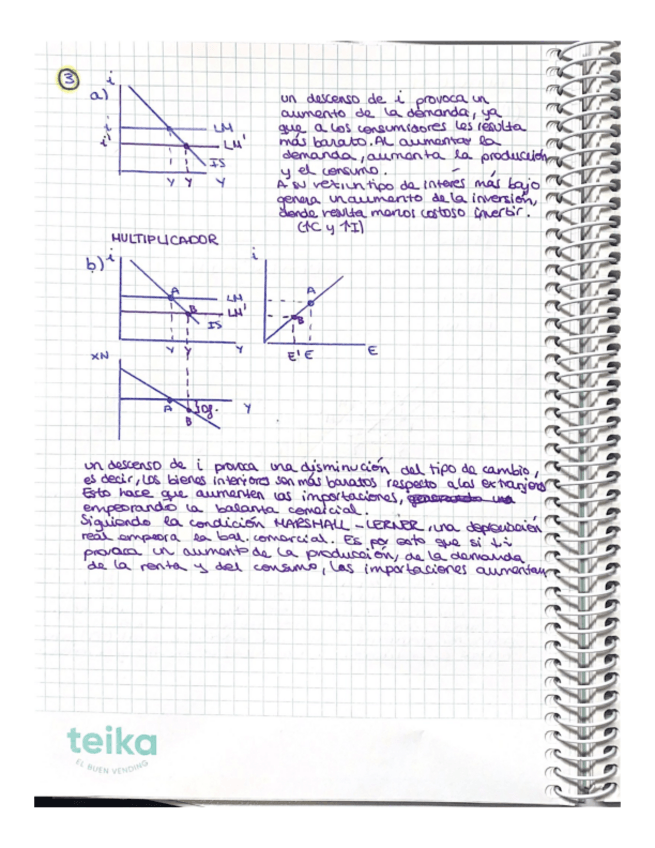 3
a)
i
LM
LM'
IS
Y Y Y
un descenso de i provoca un
aumento de la demanda, ya
que a los consumidores les resulta
más barato. Al aumentar la
demanda, aumenta la producción
y el consumo.
A su vez, un tipo de interés más bajo
genera un aumento de la inversión,
donde resulta menos costoso invertir.
(↑C y ↑I)
MULTIPLICADOR
b)
i
A
LM
B
LM'
IS
Y Y Y
i
A
B
E' E E
XN
A
B
Y
un descenso de i provoca una disminución del tipo de cambio,
es decir, los bienes interiores son más baratos respecto a los extranjeros
Esto hace que aumenten las importaciones,
empeorando la balanza comercial.
Siguiendo la condición MARSHALL - LERNER, una depreciación
real empeora la bal. comercial. Es por esto que si ↓i
provoca un aumento de la producción, de la demanda
de la renta y del consumo, las importaciones aumentan
teika
EL BUEN VENDING